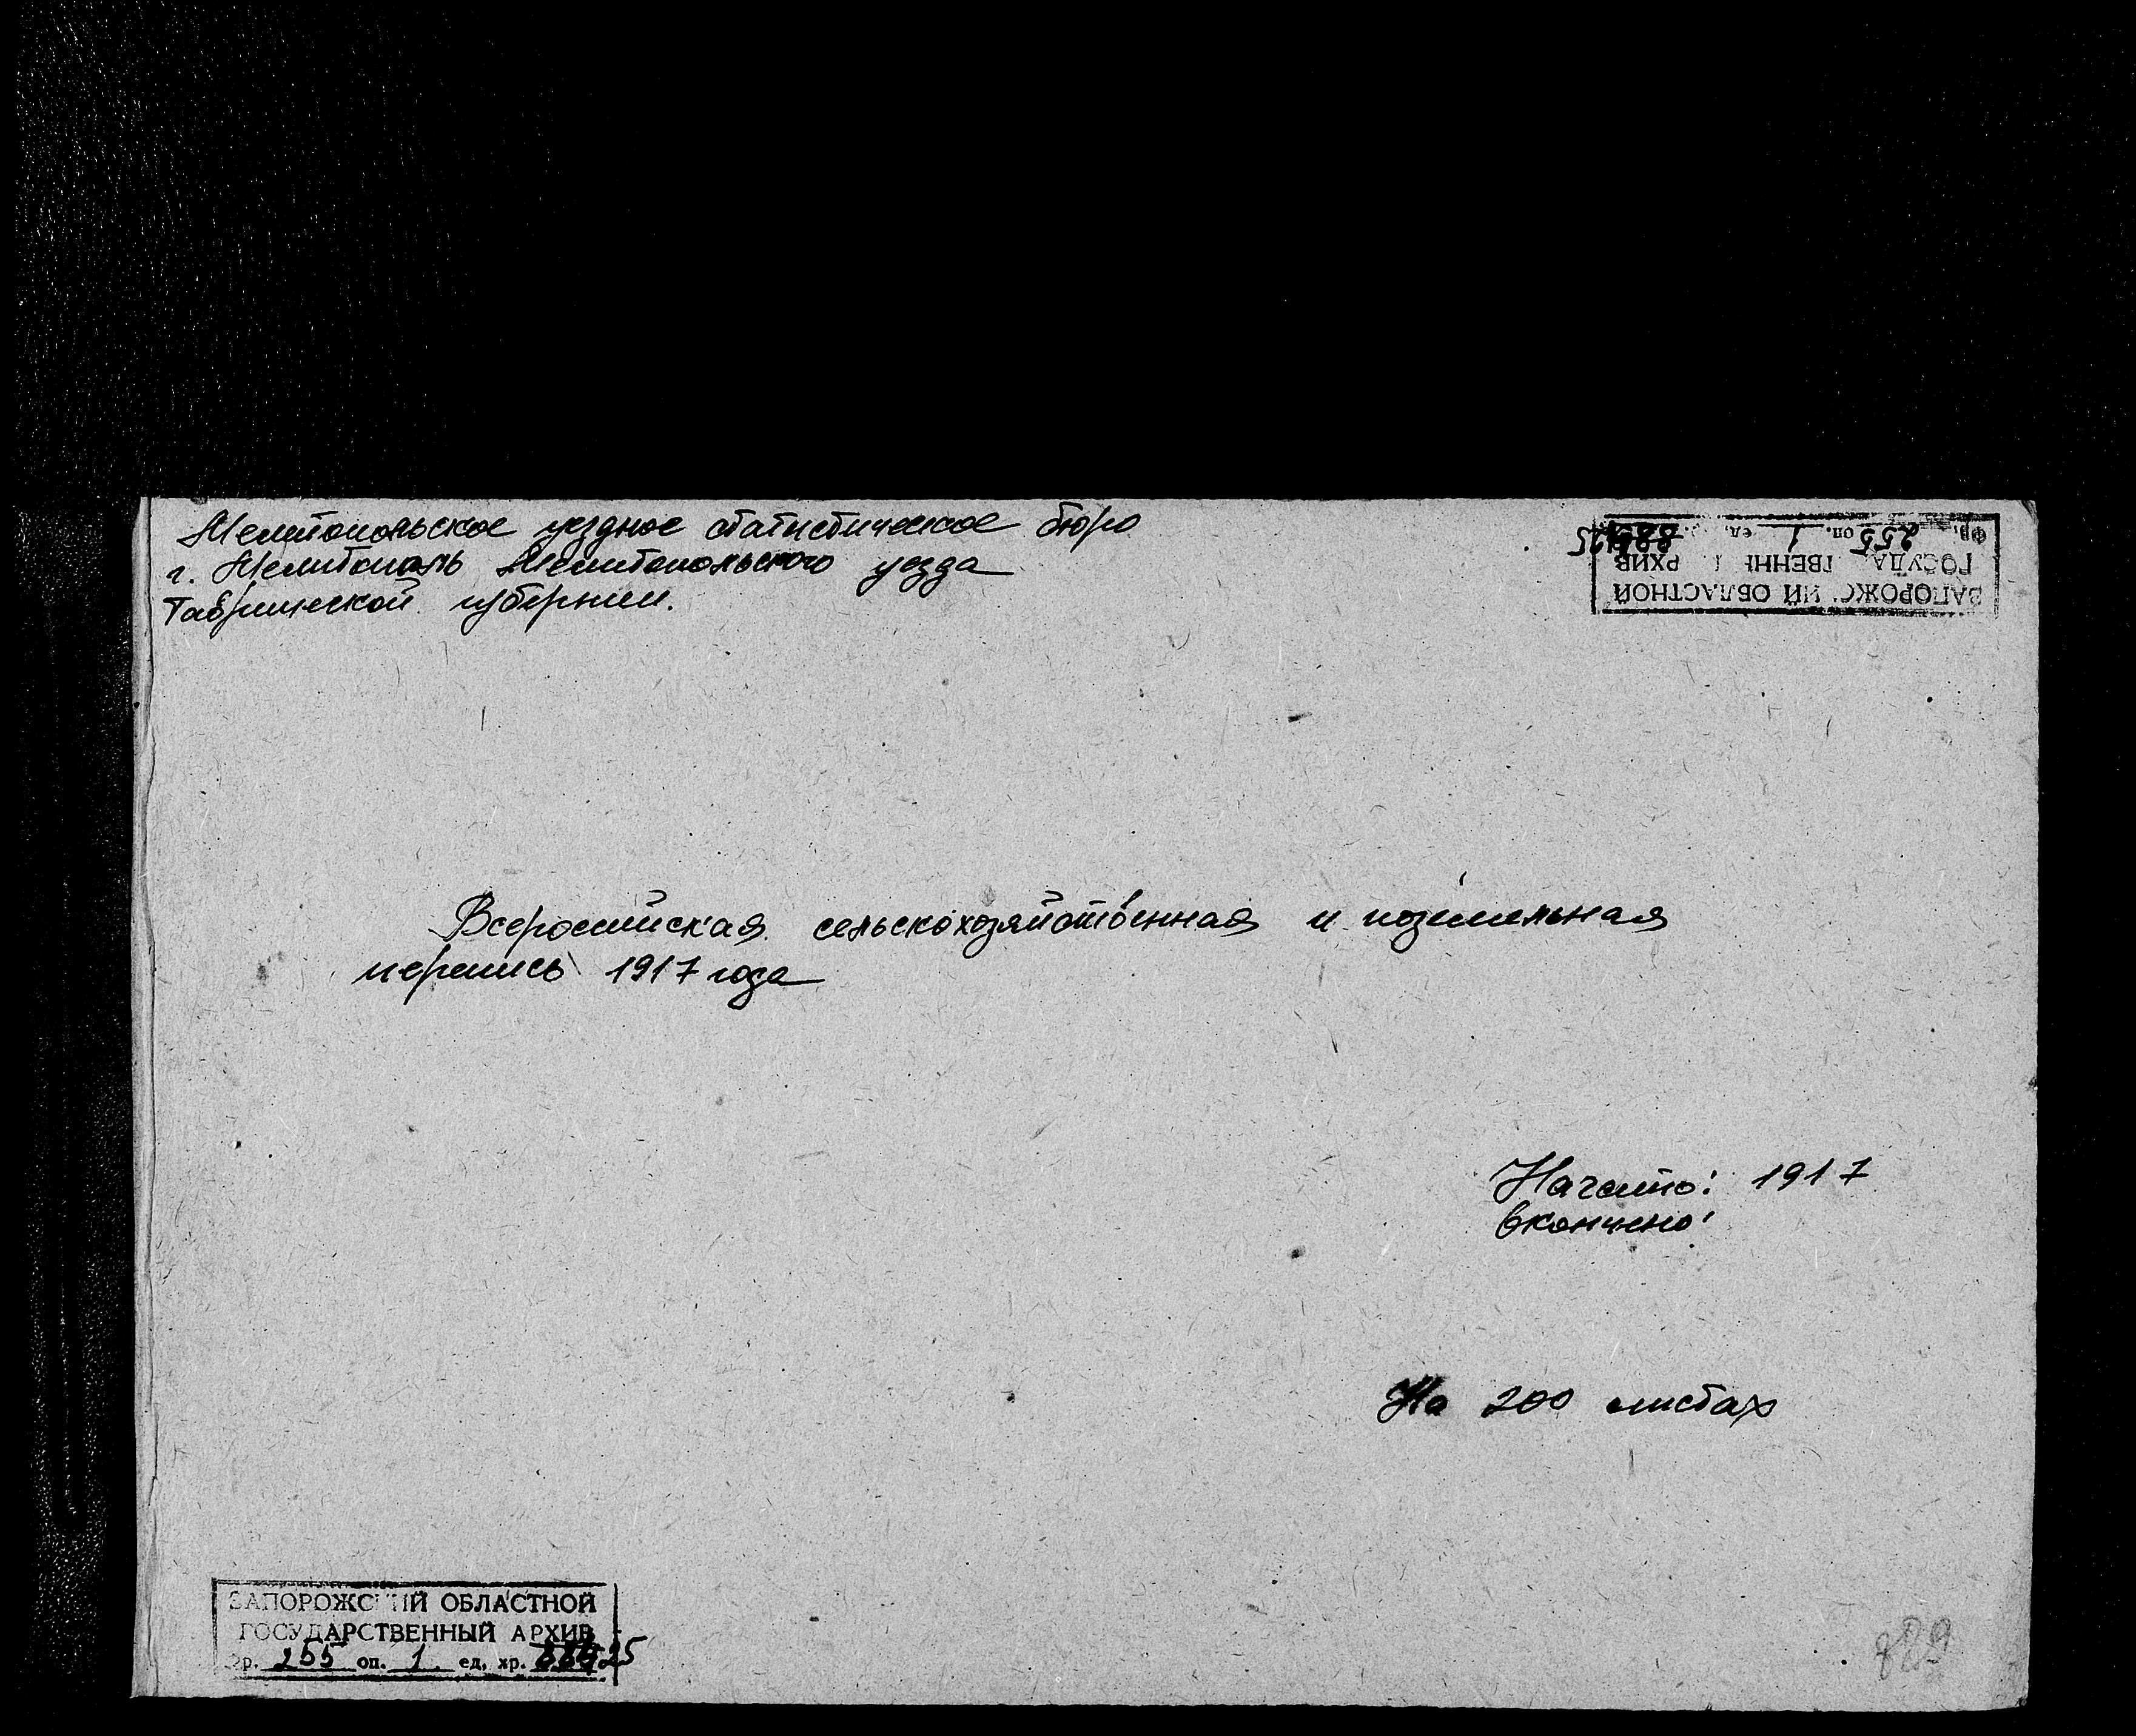 Мелитопольское уездное статистическое бюро
г. Мелитополь Мелитопольского уезда
Таврической губернии.
ЗАПОРОЖСКИЙ ОБЛАСТНОЙ
ГОСУДАРСТВЕННЫЙ АРХИВ
Фр. 255 оп. 1 ед. хр.
Всероссийская сельскохозяйственная и поземельная
перепись 1917 года
Начато: 1917
Окончено:
На 200 листах
ЗАПОРОЖСКИЙ ОБЛАСТНОЙ
ГОСУДАРСТВЕННЫЙ АРХИВ
Фр. 255 оп. 1 ед. хр.